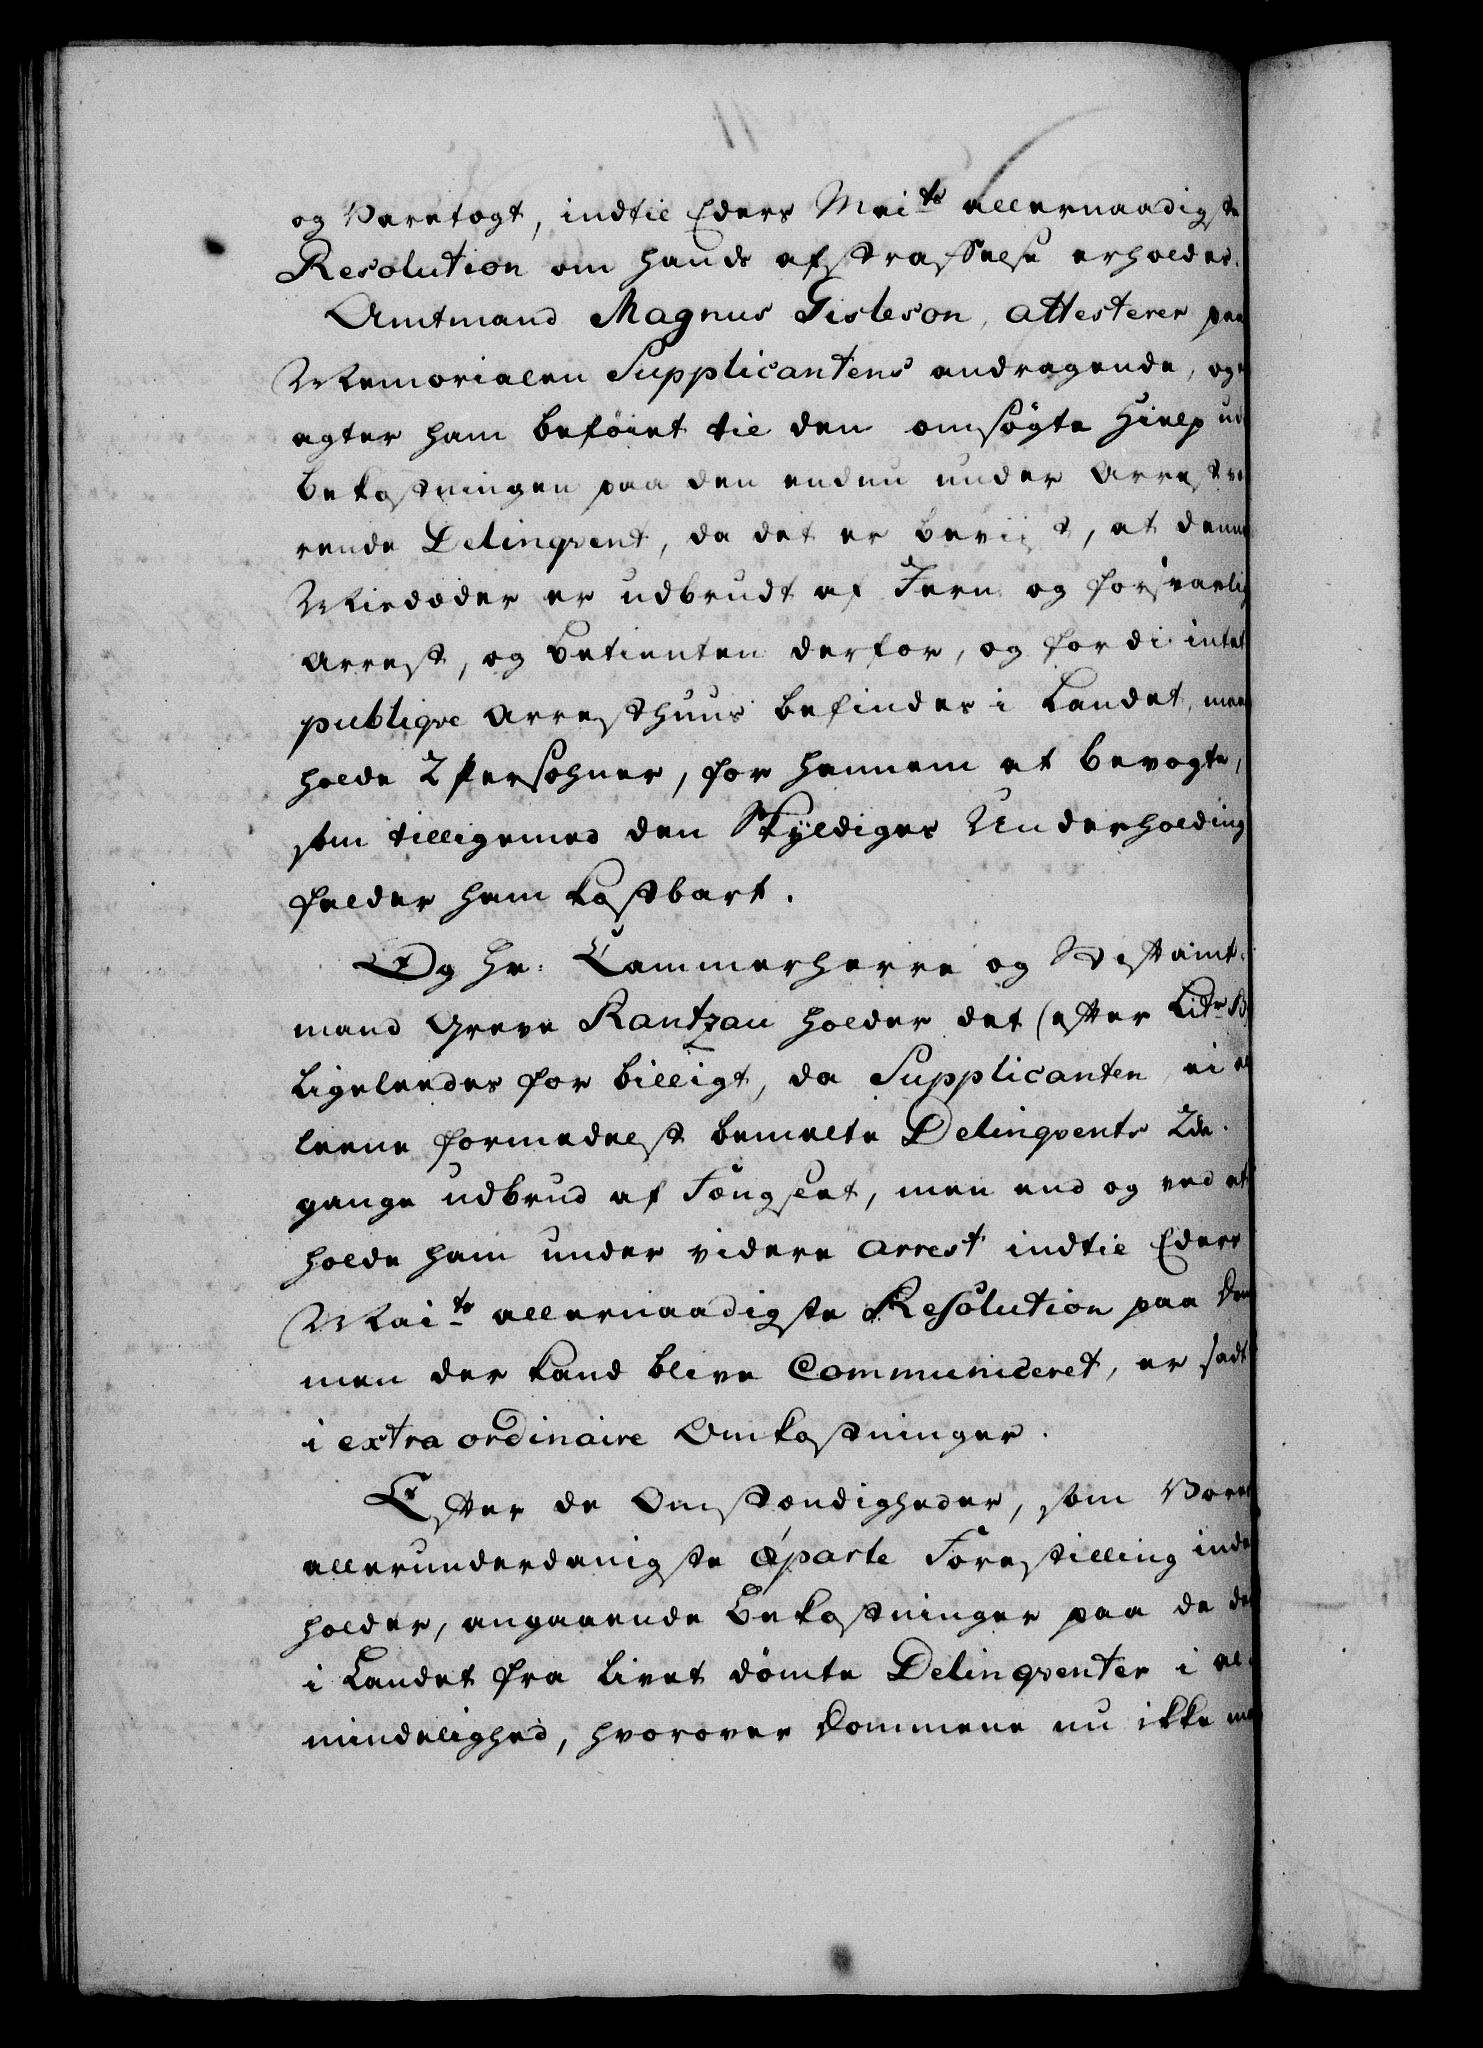 og Varetægt, indtil Eders Mai:ts allernaadigste
Resolution om hands afstraffelse erholdes.
Amtmand Magnus Gisleson, attesterer paa
Memorialen Supplicantens andragende, og
agter ham beføiet til den omsøgte Hielp ud
bekostningen paa den endnu under Arrest væ
rende Delinqvent, da det er beviist, at denne
Misdæder er udbrudt af Jern og forsvarlig
Arrest, og Betienten derfor, og fordi intet
publiqve Arresthuus befindes i Landet, maae
holde 2 Persohner, for hannem at bevogte,
som tilligemed den Skyldiges Underholding
falder ham kostbart.
Og Hr: Cammerherre og Stiftamt-
mand Greve Rantzau holder det (efter Lit: B)
ligeledes for billigt, da Supplicanten ei al
leene formedelst bemelte Delinqvents 2de
gange udbrud af Fængslet, men end og ved at
holde ham under videre Arrest indtil Eders
Mai:ts allernaadigste Resolution paa Dom
men der kand blive Communiceret, er sadt
i extra ordinaire Omkostninger.
Efter de Omstændigheder, som Vores
allerunderdanigste áparte Forestilling inde
holder, angaaende Bekostninger paa de der
i Landet fra Livet dømte Delinqventer i al-
mindelighed, hvorover Sommene nu ikke